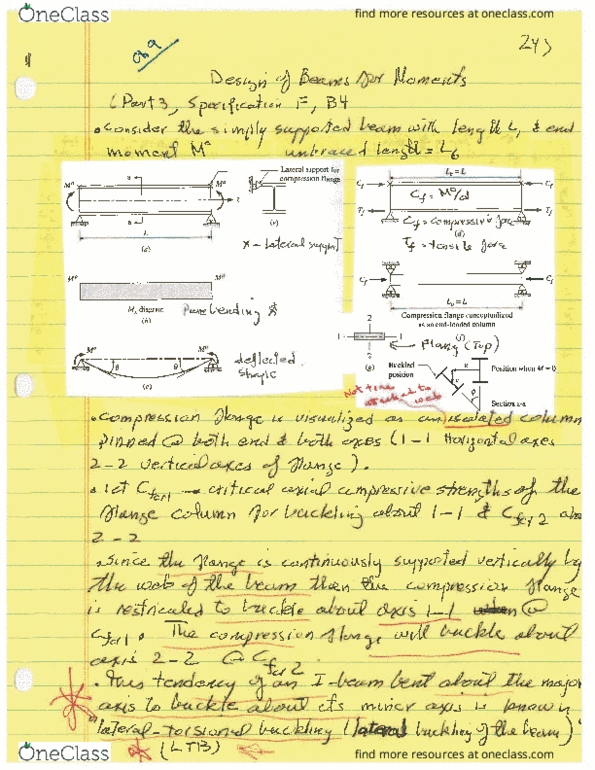 OneClass
find more resources at oneclass.com
Ch 9
243
Design of Beams for Moments
(Part 3, Specification F, B4
• Consider the simply supported beam with length L, & end
moment M° unbraced length = Lb
Lateral support for
compression flange
L
(a)
(e)
x - Lateral support
M° M°
Mx diagram
(b)
Pure bending
M° M°
θ θ
(c)
deflected
shape
Lb = L
Cf Cf
Cf = M°/d
Tf Tf
Cf = compressive force
(d)
Tf = tensile force
Cf Cf
Lb = L
Compression flange conceptualized
as an end-loaded column
(f)
2
1 1
2
(g)
Flange (Top)
Buckled
position
Position when
Section a-a
Not true
attached to
web
• Compression flange is visualized as an isolated column
pinned @ both end & both axes (1-1 Horizontal axes
2-2 vertical axes of flange).
• let Cfcr1 → critical axial compressive strengths of the
flange column for buckling about 1-1 & Cfcr2
2-2
• Since the flange is continuously supported vertically by
the web of the beam then the compression flange
is restricted to buckle about axis 1-1 @
Cfcr1. The compression flange will buckle about
axis 2-2 @ Cfcr2
• This tendency of an I-beam bent about the major
axis to buckle about its minor axis is know
"lateral-torsional buckling (lateral buckling of the beam)"
(LTB)
OneClass
find more resources at oneclass.com